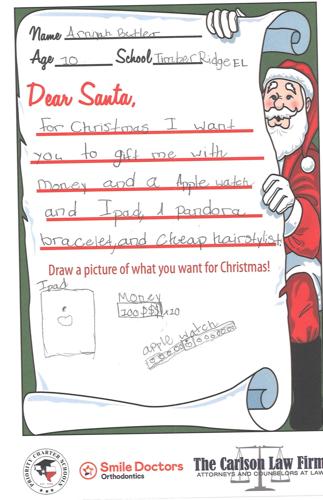 Name Armah Butler
Age 10 School TimberRidge EL
Dear Santa,
for Christmas I want
you to gift me with
Money and a Apple watch
and Ipad, 1 Pandora
bracelet, and Cheap hairstylist
Draw a picture of what you want for Christmas!
Ipad
Money
100 $$$ x10
apple watch
PRIORITY CHARTER SCHOOLS
Smile Doctors
Orthodontics
The Carlson Law Firm
ATTORNEYS AND COUNSELORS AT LAW